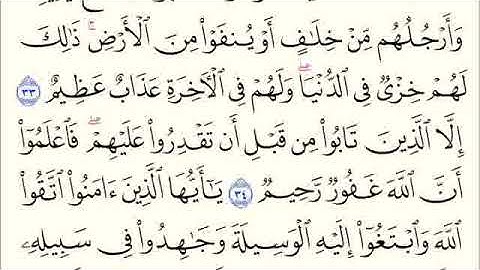 وَأَرْجُلُهُم مِّنْ خِلَٰفٍ أَوْ يُنفَوْا۟ مِنَ ٱلْأَرْضِ ۚ ذَٰلِكَ
لَهُمْ خِزْىٌ فِى ٱلدُّنْيَا ۖ وَلَهُمْ فِى ٱلْءَاخِرَةِ عَذَابٌ عَظِيمٌ ٣٣
إِلَّا ٱلَّذِينَ تَابُوا۟ مِن قَبْلِ أَن تَقْدِرُوا۟ عَلَيْهِمْ ۖ فَٱعْلَمُوٓا۟
أَنَّ ٱللَّهَ غَفُورٌ رَّحِيمٌ ٣٤ يَٰٓأَيُّهَا ٱلَّذِينَ ءَامَنُوا۟ ٱتَّقُوا۟
ٱللَّهَ وَٱبْتَغُوٓا۟ إِلَيْهِ ٱلْوَسِيلَةَ وَجَٰهِدُوا۟ فِى سَبِيلِهِۦ